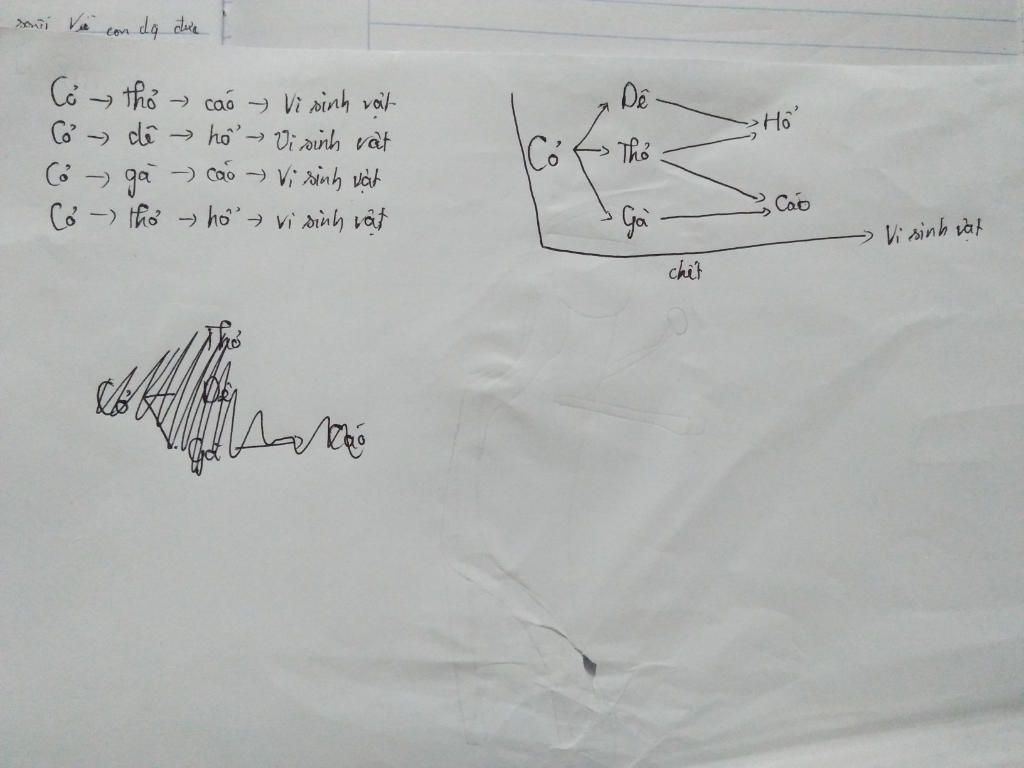 con dạ dưa
Cỏ → thỏ → cáo → Vi sinh vật
Cỏ → dê → hổ → Vi sinh vật
Cỏ → gà → cáo → Vi sinh vật
Cỏ → thỏ → hổ → vi sinh vật
Dê
Hổ
Cỏ
Thỏ
Cáo
Gà
Vi sinh vật
chết
Thỏ
Cỏ
Dê
Cáo
Gà